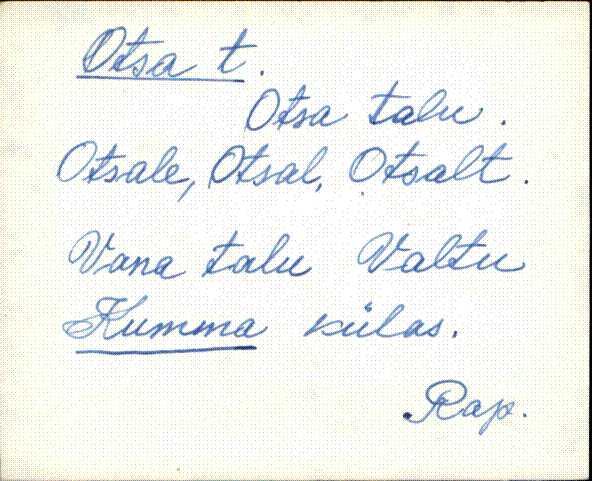 Otsa t.
Otsa talu.
Otsale, Otsal, Otsalt.
Vana talu Valtu
Kumma külas.
Rap.